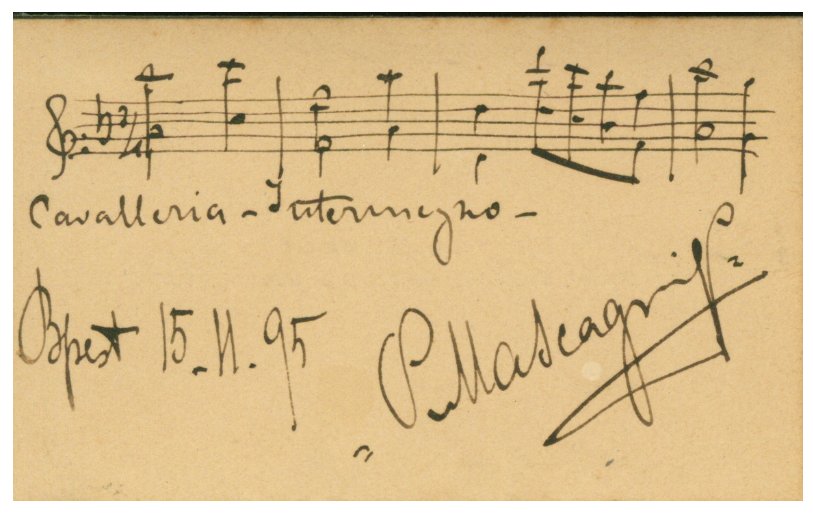 3/4
Cavalleria - Intermezzo -
Bpest 15.11.95
P. Mascagni